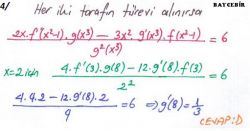 4/ Her iki tarafın türevi alınırsa
BAYCEBİR
2x.f'(x²-1).g(x³) - 3x².g'(x³).f(x²-1) / g²(x³) = 6
x=2 için 4.f'(3).g(8) - 12.g'(8).f(3) / 2² = 6
4.4.2 - 12.g'(8).2 / 4 = 6 ⇒ g'(8) = 1/3
CEVAP:D